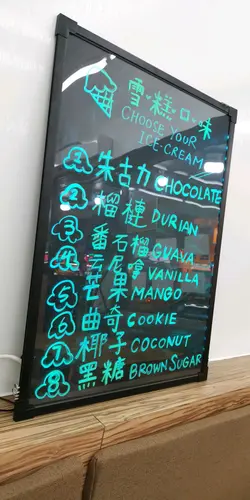 雪糕口味
CHOOSE YOUR
ICE-CREAM
1 朱古力 CHOCOLATE
2 榴槤 DURIAN
3 番石榴 GUAVA
4 云尼嗱 VANILLA
5 芒果 MANGO
6 曲奇 COOKIE
7 椰子 COCONUT
8 黑糖 BROWN SUGAR